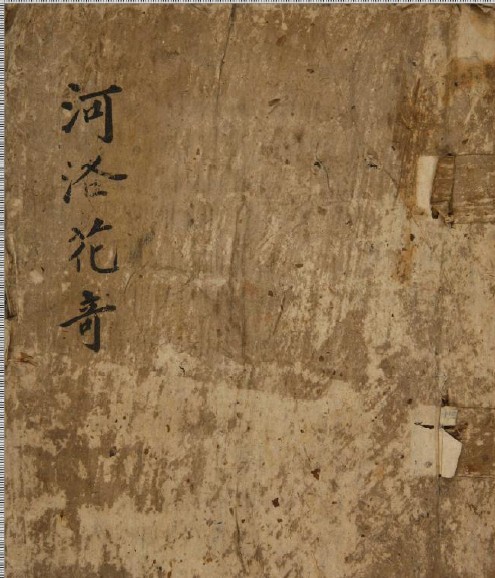 河洛花奇